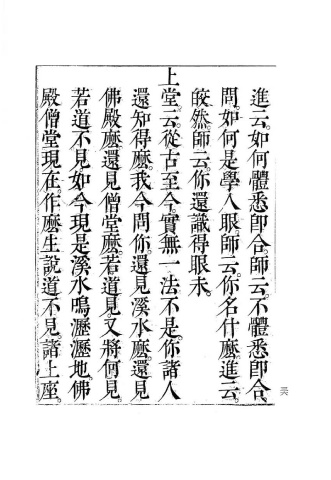 進云。如何體悉卽合。師云。不體悉卽合。
問。如何是學人眼。師云。你名什麽。進云。
皎然。師云。你還識得眼未。
上堂云。從古至今。實無一法不是。你諸人
還知得麽。我今問你。還見溪水麽。還見
佛殿麽。還見僧堂麽。若道見。又將何見。
若道不見。如今現是溪水鳴瀝瀝地。佛
殿僧堂現在。作麽生說道不見。諸上座。